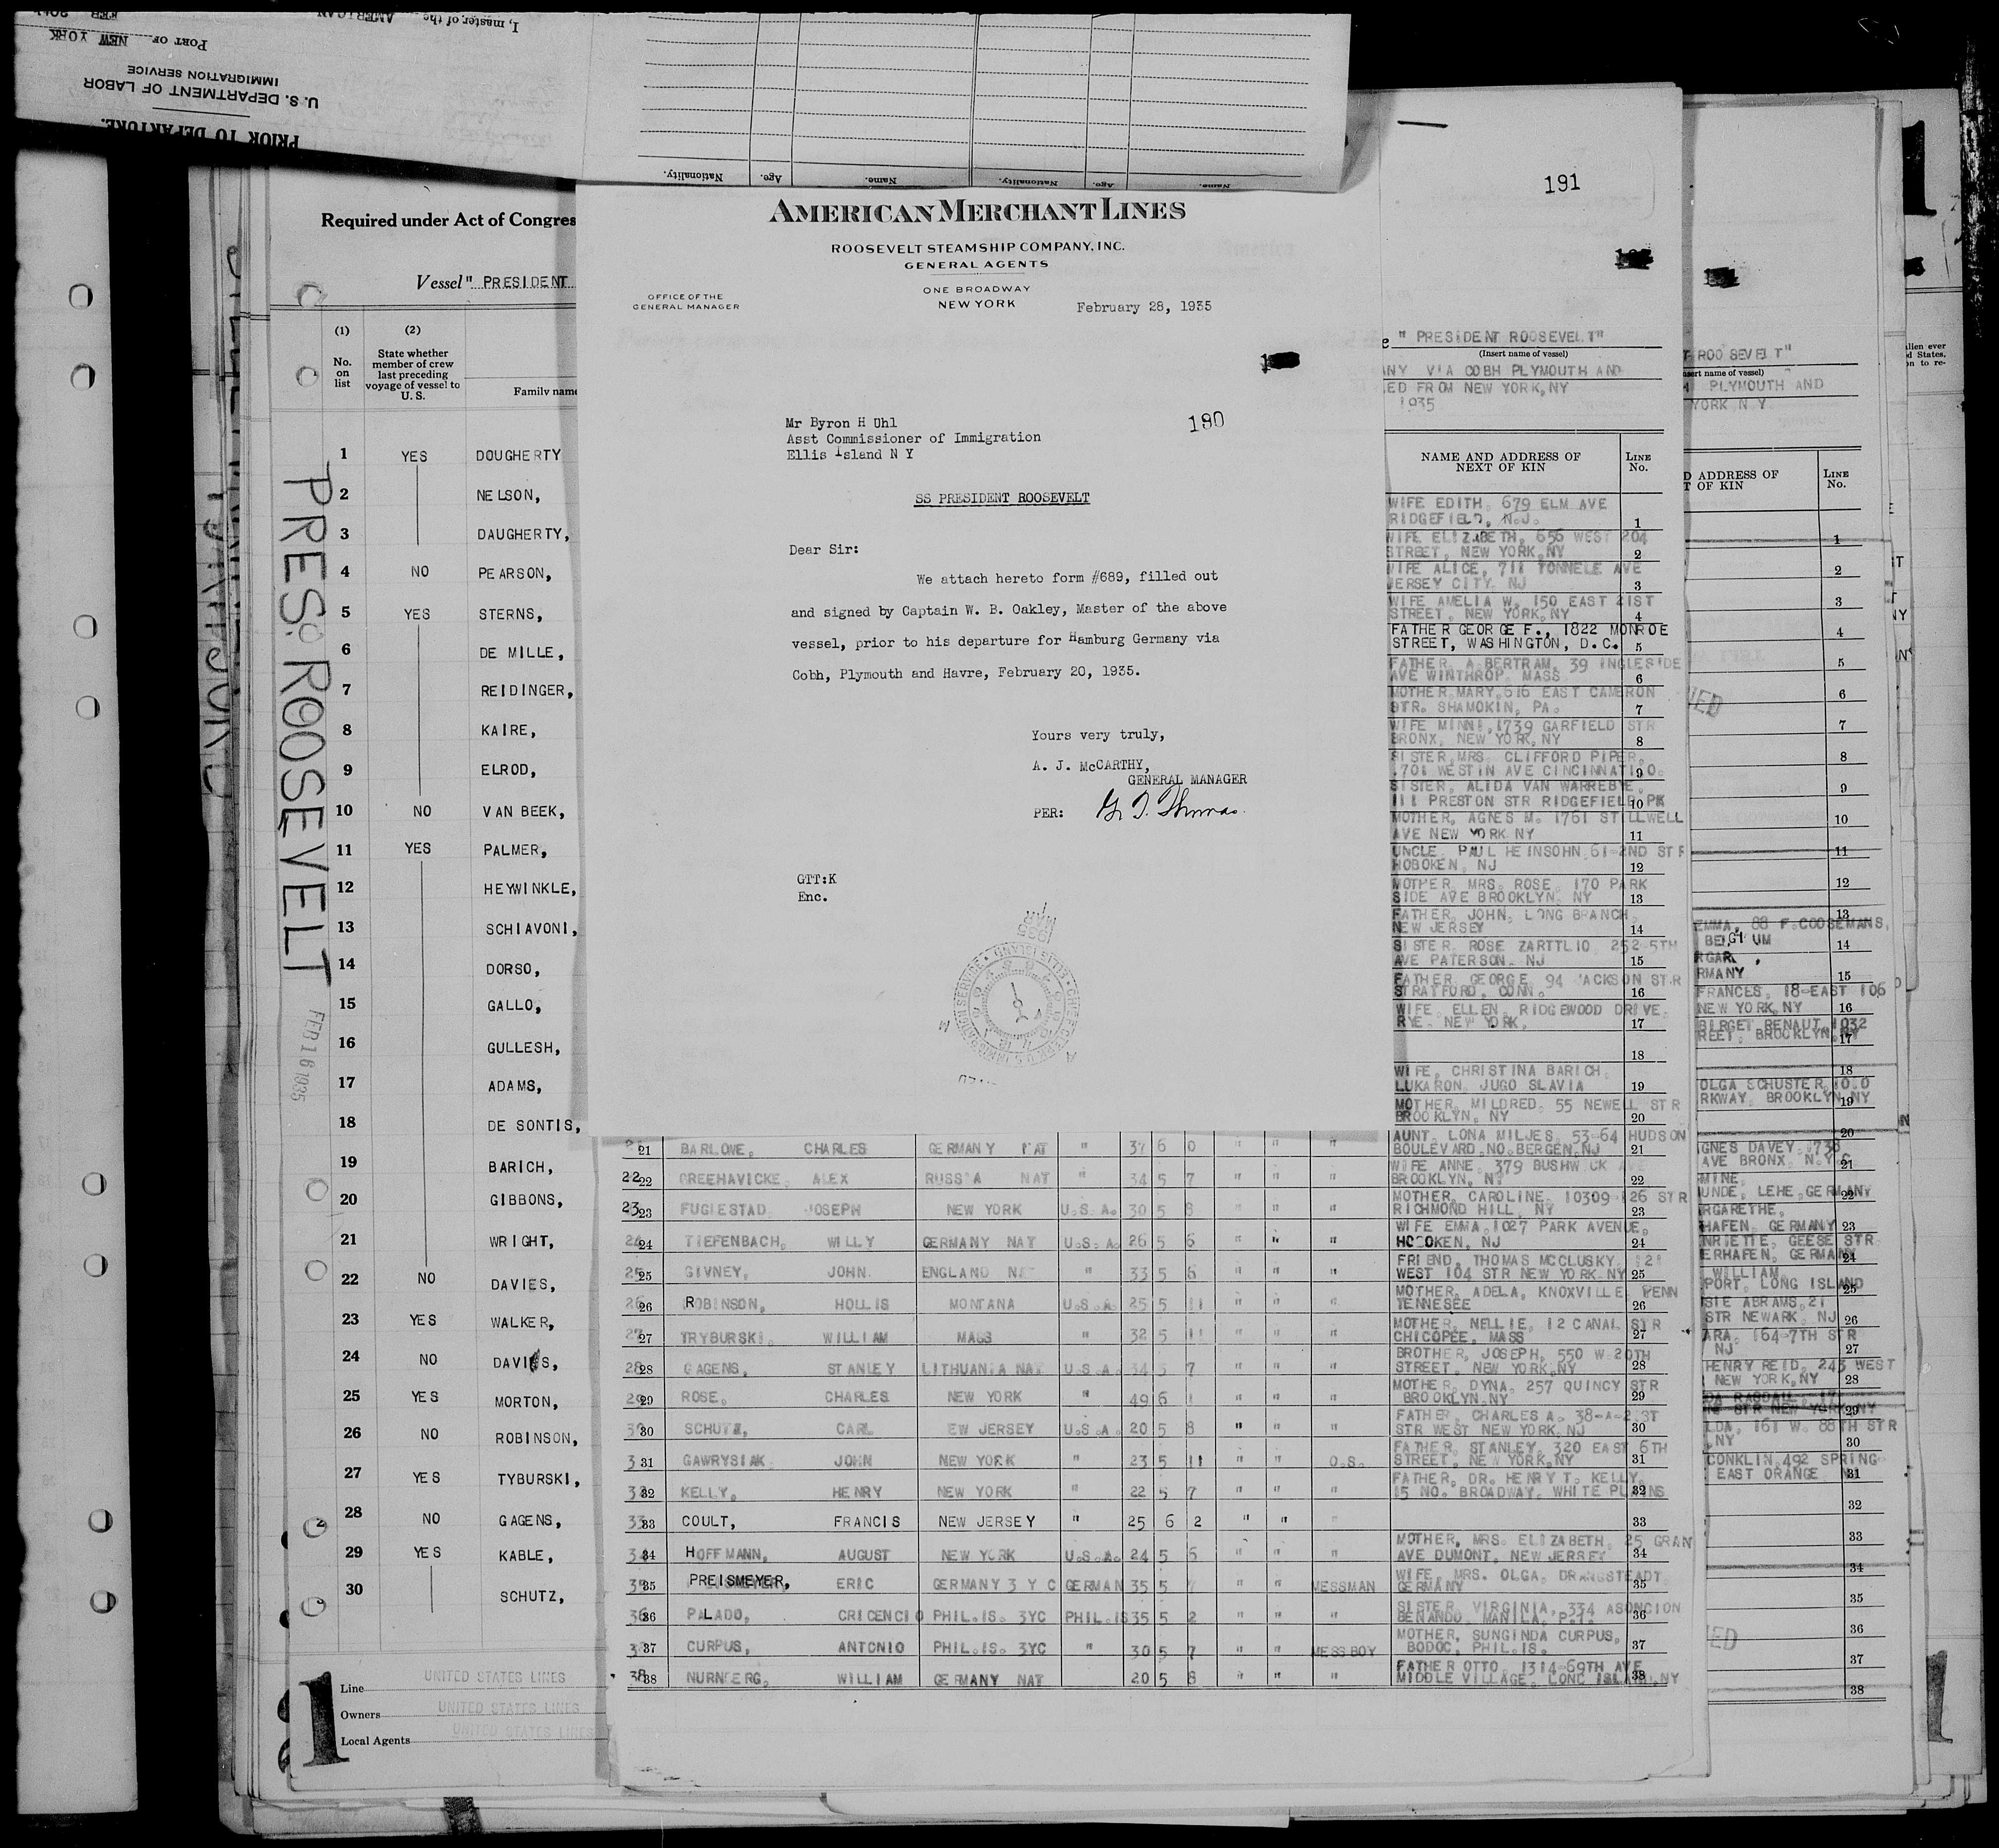 I, master, of the AMERICAN
PORT OF NEW YORK
IMMIGRATION SERVICE
U. S. DEPARTMENT OF LABOR
PRIOR TO DEPARTURE.
Nationality. Age. Name. Nationality. Age. Name.
Required under Act of Congres
Vessel " PRESIDENT
(1) (2)
No. on list
State whether member of crew last preceding voyage of vessel to U. S.
Family name
1 YES DOUGHERTY
2 NELSON,
3 DAUGHERTY,
4 NO PEARSON,
5 YES STERNS,
6 DE MILLE,
7 REIDINGER,
8 KAIRE,
9 ELROD,
10 NO VAN BEEK,
11 YES PALMER,
12 HEYWINKLE,
13 SCHIAVONI,
14 DORSO,
15 GALLO,
16 GULLESH,
17 ADAMS,
18 DE SONTIS,
19 BARICH,
20 GIBBONS,
21 WRIGHT,
22 NO DAVIES,
23 YES WALKER,
24 NO DAVIES,
25 YES MORTON,
26 NO ROBINSON,
27 YES TYBURSKI,
28 NO GAGENS,
29 YES KABLE,
30 SCHUTZ,
Line UNITED STATES LINES
Owners UNITED STATES LINES
Local Agents UNITED STATES LINES
1
PRES. ROOSEVELT
FEB 16 1935
AMERICAN MERCHANT LINES
ROOSEVELT STEAMSHIP COMPANY, INC.
GENERAL AGENTS
ONE BROADWAY
NEW YORK
OFFICE OF THE
GENERAL MANAGER
February 28, 1935
190
Mr Byron H Uhl
Asst Commissioner of Immigration
Ellis Island N Y
SS PRESIDENT ROOSEVELT
Dear Sir:
We attach hereto form #689, filled out
and signed by Captain W. B. Oakley, Master of the above
vessel, prior to his departure for Hamburg Germany via
Cobh, Plymouth and Havre, February 20, 1935.
Yours very truly,
A. J. McCARTHY,
GENERAL MANAGER
PER: G. T. Thomas.
GTT:K
Enc.
191
e " PRESIDENT ROOSEVELT"
(Insert name of vessel)
ANY VIA COBH PLYMOUTH AND
ED FROM NEW YORK,NY
1935
NAME AND ADDRESS OF NEXT OF KIN
LINE No.
WIFE EDITH, 679 ELM AVE
RIDGEFIELD, N.J. 1
WIFE ELIZABETH, 656 WEST 204
STREET, NEW YORK,NY 2
WIFE ALICE, 711 TONNELE AVE
JERSEY CITY. NJ 3
WIFE AMELIA W, 150 EAST 21ST
STREET, NEW YORK,NY 4
FATHER GEORGE F., 1822 MONROE
STREET, WASHINGTON, D.C. 5
FATHER, A BERTRAM, 39 INGLESIDE
AVE WINTHROP. MASS 6
MOTHER,MARY,616 EAST CAMERON
STR. SHAMOKIN, PA. 7
WIFE MINNI,1739 GARFIELD STR
BRONX, NEW YORK,NY 8
SISTER,MRS. CLIFFORD PIPER,
1701 WESTIN AVE CINCINNATI O. 9
SISTER, ALIDA VAN WARREBYE,
111 PRESTON STR RIDGEFIELD PK 10
MOTHER, AGNES M. 1761 STILLWELL
AVE NEW YORK NY 11
UNCLE, PAUL HEINSOHN 61-2ND STR
HOBOKEN, NJ 12
MOTHER, MRS. ROSE, 170 PARK
SIDE AVE BROOKLYN, NY 13
FATHER, JOHN, LONG BRANCH,
NEW JERSEY 14
SISTER, ROSE ZARTTLIO, 252-5TH
AVE PATERSON. NJ 15
FATHER, GEORGE, 94 JACKSON STR
STRATFORD, CONN. 16
WIFE, ELLEN, RIDGEWOOD DRIVE,
RYE. NEW YORK, 17
18
WIFE, CHRISTINA BARICH,
LUKARON, JUGO SLAVIA 19
MOTHER, MILDRED, 55 NEWELL STR
BROOKLYN, NY 20
21 BARLOWE, CHARLES GERMANY NAT " 37 6 0 " " "
AUNT, LONA MILJES, 53-64 HUDSON
BOULEVARD,NO.BERGEN,NJ 21
22 OREEHAVICKE, ALEX RUSSIA NAT " 34 5 7 " " "
WIFE ANNE, 379 BUSHWICK AVE
BROOKLYN, NY 22
23 FUGLESTAD, JOSEPH NEW YORK U.S.A. 30 5 8 " " "
MOTHER, CAROLINE, 10309-126 STR
RICHMOND HILL, NY 23
24 TIEFENBACH, WILLY GERMANY NAT U.S.A. 26 5 6 " " "
WIFE EMMA,1027 PARK AVENUE,
HOBOKEN, NJ 24
25 GIVNEY, JOHN ENGLAND NAT " 33 5 6 " " "
FRIEND, THOMAS MCCLUSKY, 121
WEST 104 STR NEW YORK,NY 25
26 ROBINSON, HOLLIS MONTANA U.S.A. 25 5 11 " " "
MOTHER, ADELA, KNOXVILLE, PENN
TENNESEE 26
27 TRYBURSKI, WILLIAM MASS " 32 5 11 " " "
MOTHER, NELLIE, 12 CANAL STR
CHICOPEE, MASS 27
28 GAGENS, STANLEY LITHUANIA NAT U.S.A. 34 5 7 " " "
BROTHER, JOSEPH, 550 W 20TH
STREET, NEW YORK,NY 28
29 ROSE, CHARLES NEW YORK " 49 6 1 " " "
MOTHER, DYNA, 257 QUINCY STR
BROOKLYN,NY 29
30 SCHUTZ, CARL EW JERSEY U.S.A. 20 5 8 " " "
FATHER, CHARLES A. 38-A-21ST
STR WEST NEW YORK,NJ 30
31 GAWRYSIAK JOHN NEW YORK " 23 5 11 " " O.S.
FATHER, STANLEY, 320 EAST 6TH
STREET, NEW YORK,NY 31
32 KELLY, HENRY NEW YORK " 22 5 7 " " "
FATHER, DR. HENRY T. KELLY,
15 NO. BROADWAY, WHITE PLAINS 32
33 COULT, FRANCIS NEW JERSEY " 25 6 2 " " " 33
34 HOFFMANN, AUGUST NEW YORK U.S.A. 24 5 6 " " "
MOTHER, MRS. ELIZABETH, 25 GRAN
AVE DUMONT, NEW JERSEY 34
35 PREISMEYER, ERIC GERMANY 3 Y C GERMAN 35 5 7 " " MESSMAN
WIFE, MRS. OLGA, DRANGSTEADT,
GERMANY 35
36 PALADO, CRICENCIO PHIL.IS. 3YC PHIL.IS 35 5 2 " " "
SISTER, VIRGINIA, 334 ASONCION
BENANDO, MANILA, P.I. 36
37 CURPUS, ANTONIO PHIL.IS. 3YC " 30 5 7 " " MESSBOY
MOTHER, SUNGINDA CURPUS,
BODOC, PHIL.IS. 37
38 NURNBERG, WILLIAM GERMANY NAT 20 5 8 " " "
FATHER OTTO, 1314-69TH AVE
MIDDLE VILLAGE, LONG ISLAND,NY 38
T ROOSEVELT"
nsert name of vessel)
PLYMOUTH AND
YORK N Y
D ADDRESS OF
T OF KIN
LINE No.
1
2
3
4
5
6
7
8
9
10
11
12
13
EMMA, 88 F.COOSEMANS,
BELGIUM 14
RMANY 15
FRANCES, 18-EAST 106
NEW YORK,NY 16
BIRGET RENAUT,1032
REET, BROOKLYN,NY 17
18
OLGA SCHUSTER,1010
RKWAY, BROOKLYN,NY 19
20
GNES DAVEY, 1738
AVE BRONX, N.Y.C 21
MINE,
UNDE, LEHE,GERMANY 22
RGARETHE,
HAFEN, GERMANY 23
NRIETTE, GEESE STR
ERHAFEN, GERMANY 24
WILLIAM
PORT, LONG ISLAND 25
SIE ABRAMS,21
STR NEWARK, NJ 26
ARA, 164-7TH STR
NJ 27
HENRY REID, 243 WEST
NEW YORK,NY 28
29
LDA, 161 W. 88TH STR
,NY 30
CONKLIN,492 SPRING
EAST ORANGE NJ 31
32
33
34
35
36
37
38